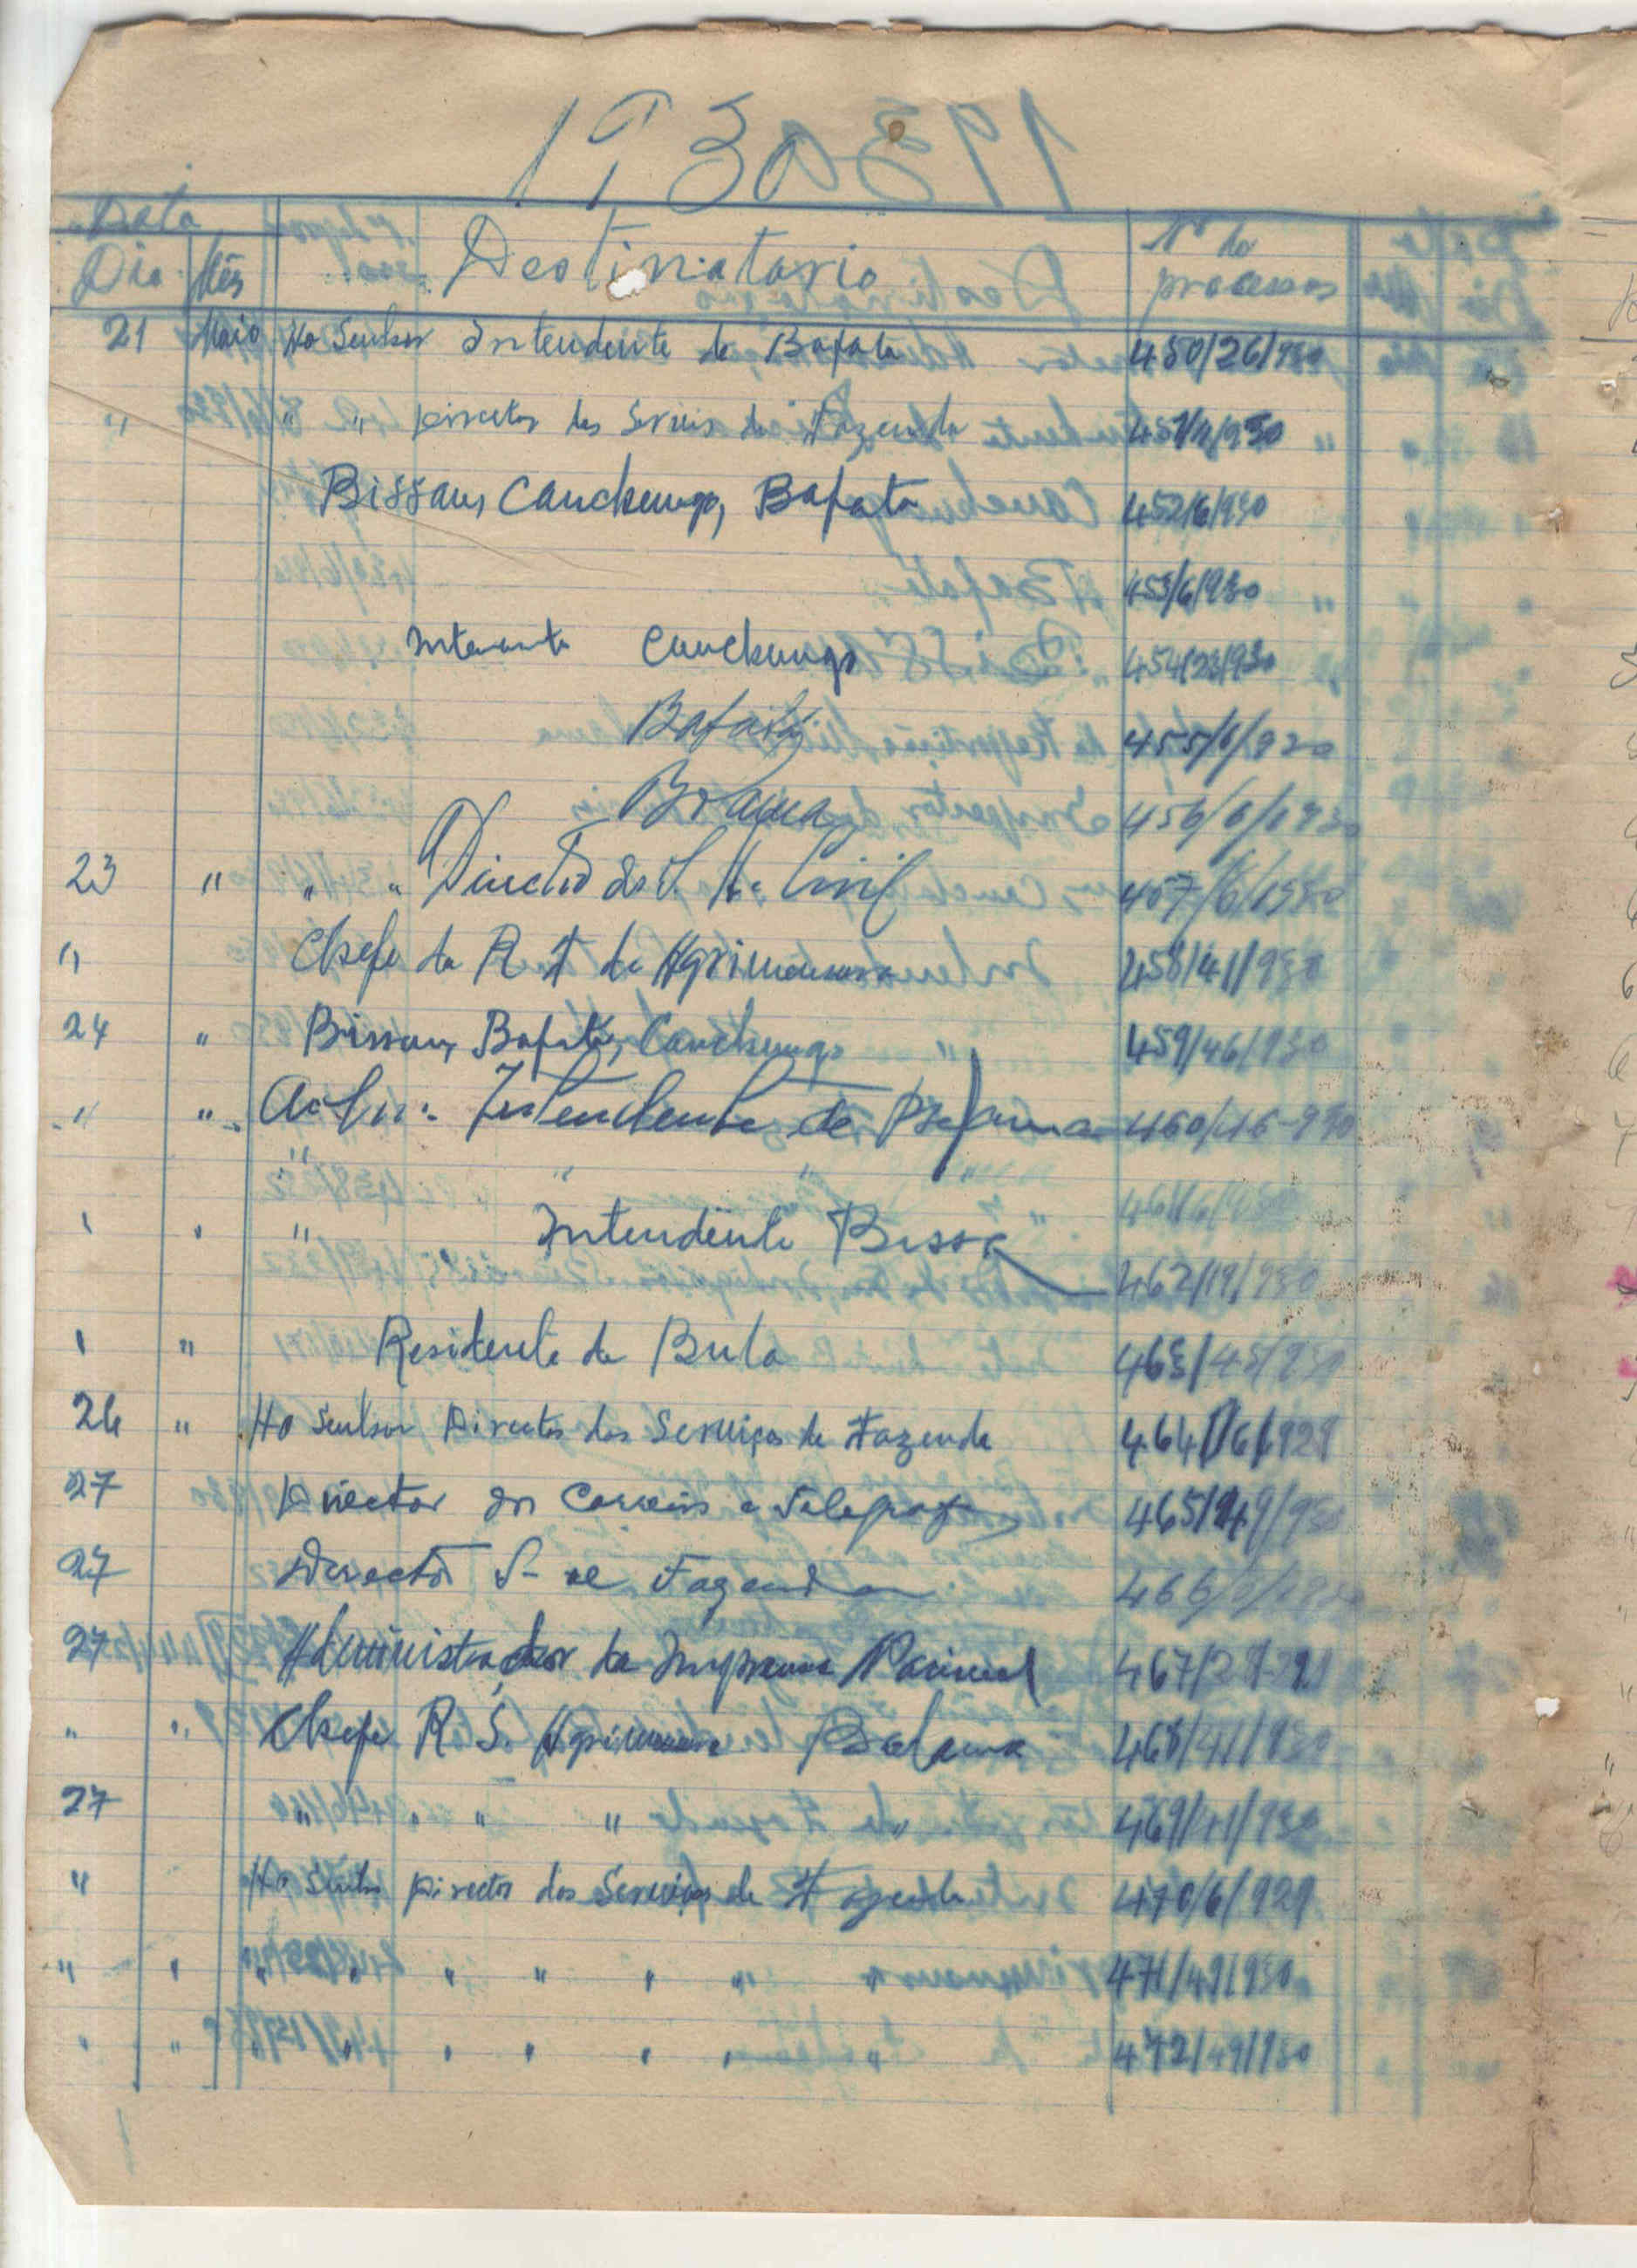 Data
Dia Mês Destinatario Nº do processos
21 Maio Ao Senhor Intendente de Bafata 450/26/930
" " " " Director dos Serviços de Fazenda
Bissau, Canchungo, Bafata 452/6/930
453/6/930
Intendente Canchungo 454/23/930
Bafatá 455/6/930
Bolama 456/6/1930
23 " " " Director do S. A. Civil 457/6/1930
" Chefe da R. T. de Agrimensura 458/41/930
24 " Bissau, Bafatá, Canchungo 459/46/930
" " Intendente de Bolama 460/46-930
" " " " 461/6/930
" " " Intendente Bissa 462/19/930
" " Residente de Bula 463/45/930
26 " Ao Senhor Director dos Serviços de Fazenda 464/6/929
27 Director dos Correios e Telegrafos 465/49/930
27 Director S. de Fazenda
27 Administrador da Imprensa Nacional
" " Chefe R. S. Agrimensura Bolama 468/41/930
27 " " " " " 469/41/930
" Ao Senhor Director dos Serviços de Fazenda 470/6/929
" " " " " " " " " 471/49/930
" " " " " " " " " 472/49/930